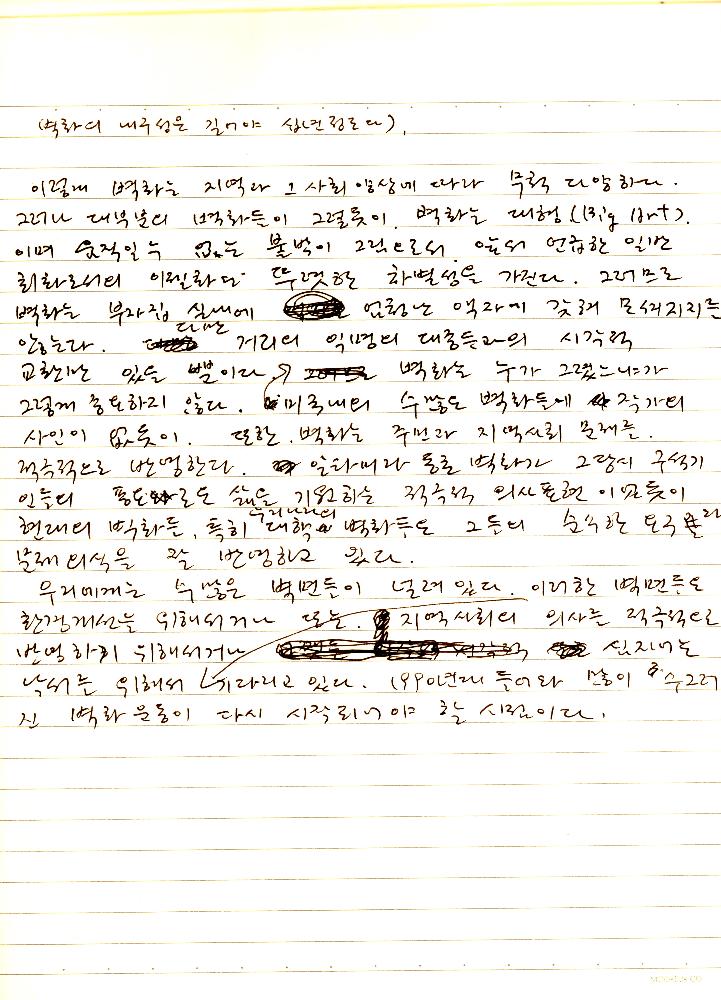 (벽화의 내구성은 길어야 십년정도다).
이렇게 벽화는 지역과 그 사회 양상에 따라 무척 다양하다.
그러나 대부분의 벽화들이 그렇듯이, 벽화는 대형(Big Art).
이며 움직일 수 없는 붙박이 그림으로서, 앞서 언급한 일반
회화로서의 이젤화와 뚜렷한 차별성을 가진다. 그러므로
벽화는 부자집 실내에 엄청난 액자에 갖혀 모셔지지를
않는다. 다만 거리의 익명의 대중들과의 시각적
교환만 있을 뿐이다 벽화는 누가 그렸느냐가
그렇게 중요하지 않다. 미국내의 수많은 벽화들에 작가의
사인이 없듯이. 또한, 벽화는 주민과 지역사회 문제를.
적극적으로 반영한다. 알타미라 동굴 벽화가 그당시 구석기
인들의 풍요로운 삶을 기원하는 적극적 의사표현이었듯이
현대의 벽화들, 특히 우리나라의 대학 벽화들도 그들의 순수한 요구와
문제의식을 잘 반영하고 있다.
우리에게는 수많은 벽면들이 널려있다. 이러한 벽면들은
환경개선을 위해서거나 또는, 지역사회의 의사를 적극적으로
반영하기 위해서거나 심지어는
낙서를 위해서 기다리고 있다. 1990년대 들어와 많이 수그러
진 벽화운동이 다시 시작되어야 할 시점이다.